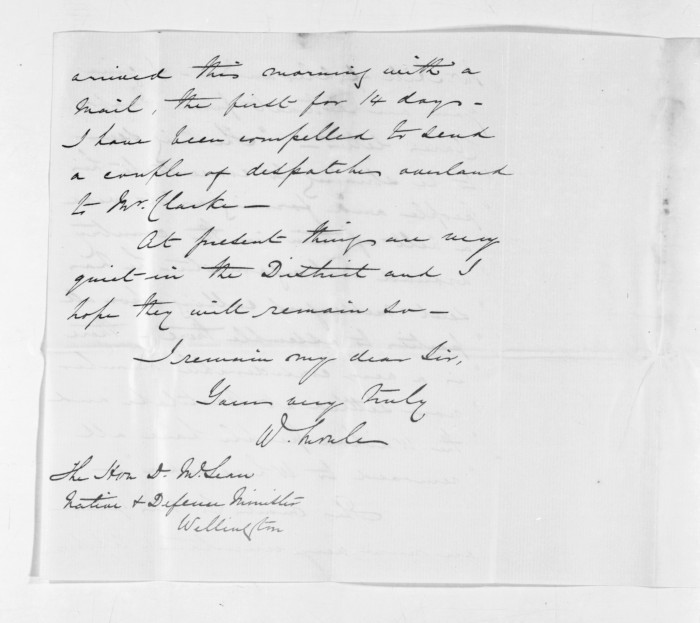 arrived this morning with a
Mail, the first for 14 days –
I have been compelled to send
a couple of despatches overland
to Mr. Clarke –
At present things are very
quiet in the District and I
hope they will remain so –
I remain my dear Sir,
Yours very truly
W. Moule
The Hon D. McLean
Native & Defence Minister
Wellington